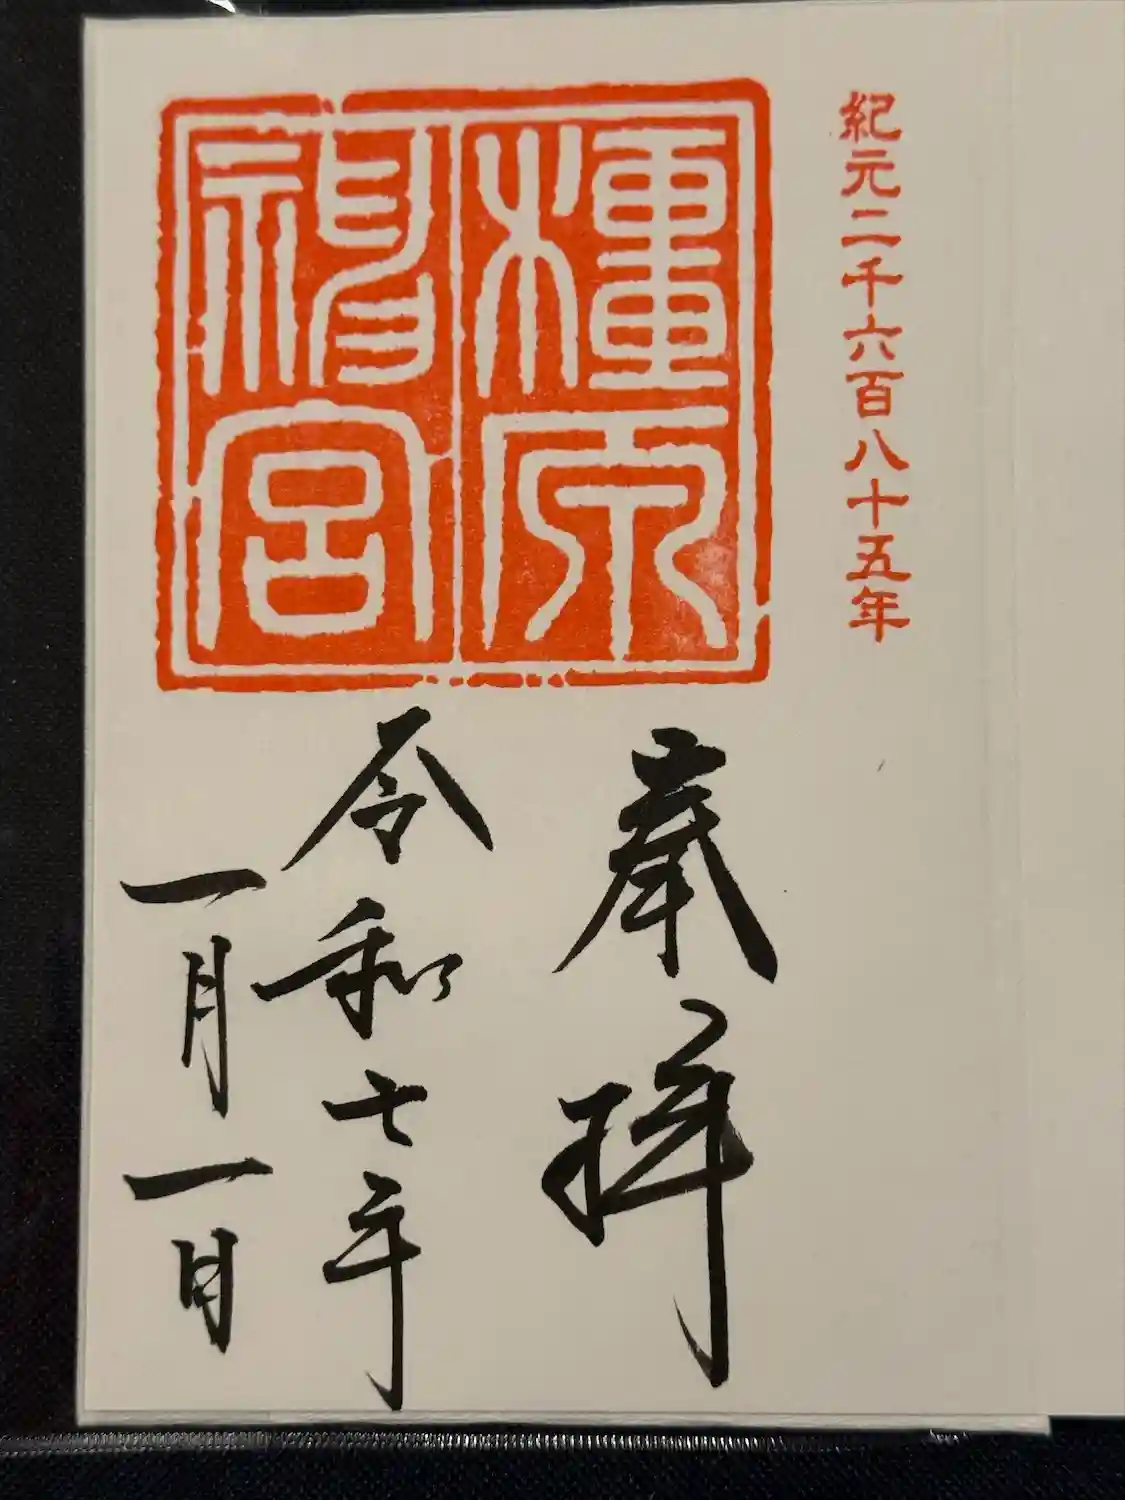 紀元二千六百八十五年
橿原
神宮
奉拝
令和七年
一月一日